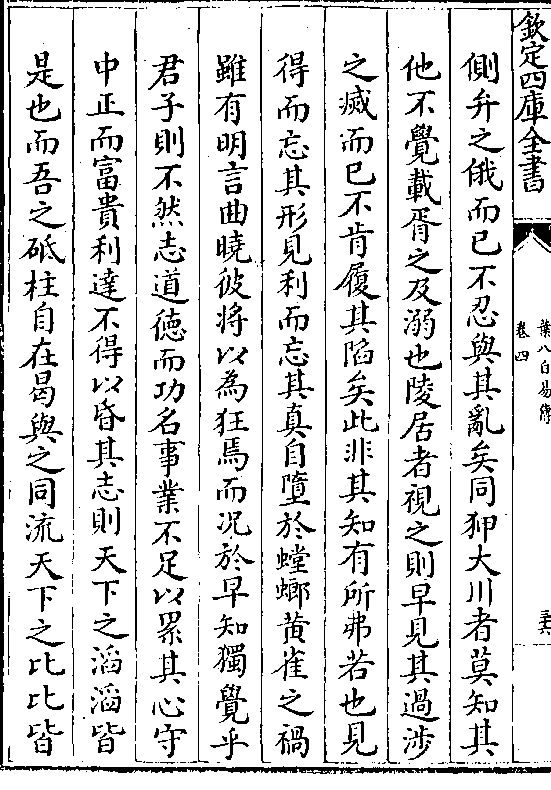 欽定四庫全書
葉八白易傳
卷四
三十六
側弁之俄而已不忍與其亂矣同狎大川者莫知其
他不覺載胥之及溺也陵居者視之則早見其過涉
之滅而已不肯履其陷矣此非其知有所弗若也見
得而忘其形見利而忘其真自墮於螳螂黄雀之禍
雖有明言曲曉彼將以為狂焉而况於早知獨覺乎
君子則不然志道徳而功名事業不足以累其心守
中正而富貴利達不得以昏其志則天下之滔滔皆
是也而吾之砥柱自在曷與之同流天下之比比皆